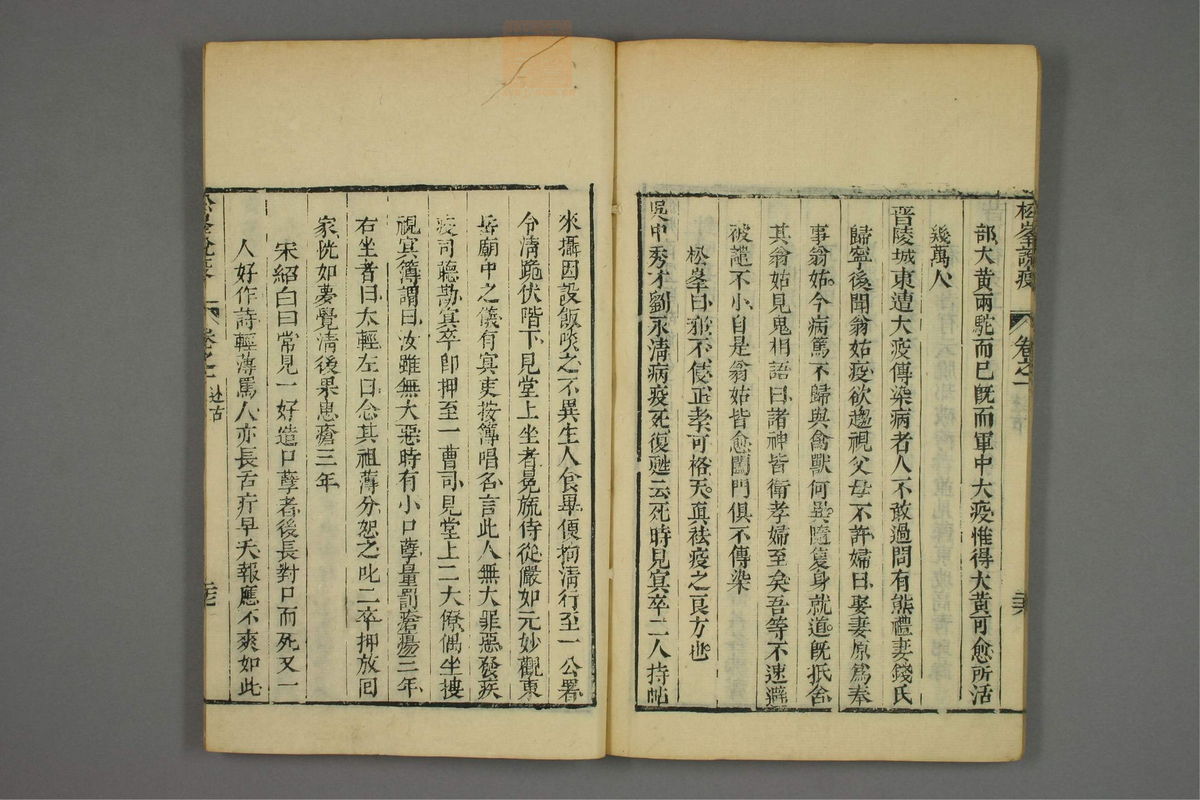 松峯說疫 卷之一 述古 三六
部大黃兩駝而已旣而軍中大疫惟得大黃可愈所活
幾萬人
晋陵城東遭大疫傳染病者人不敢過問有熊禮妻錢氏
歸寧後聞翁姑疫欲趨視父母不許婦曰娶妻原爲奉
事翁姑今病篤不歸與禽獸何異隨隻身就道旣抵舍
其翁姑見鬼相語曰諸神皆衛孝婦至矣吾等不速避
被譴不小自是翁姑皆愈闔門俱不傳染
松峯曰邪不侵正孝可格天真祛疫之良方也
吳中秀才劉永淸病疫死復甦云死時見冥卒二人持帖
來攝因設飯啖之不異生人食畢便拘淸行至一公署
令淸跪伏階下見堂上坐者冕旒侍從嚴如元妙觀東
岳廟中之儀有冥吏按簿唱名言此人無大罪惡發疾
疫司聽勘冥卒卽押至一曹司見堂上二大僚偶坐搜
視冥簿謂曰汝雖無大惡時有小口孽量罰瘡瘍三年
右坐者曰太輕左曰念其祖薄分恕之叱二卒押放囘
家恍如夢覺淸後果患瘡三年
宋紹白曰常見一好造口孽者後長對口而死又一
人好作詩輕薄罵人亦長舌疔早夭報應不爽如此
松峯說疫 卷之一 述古